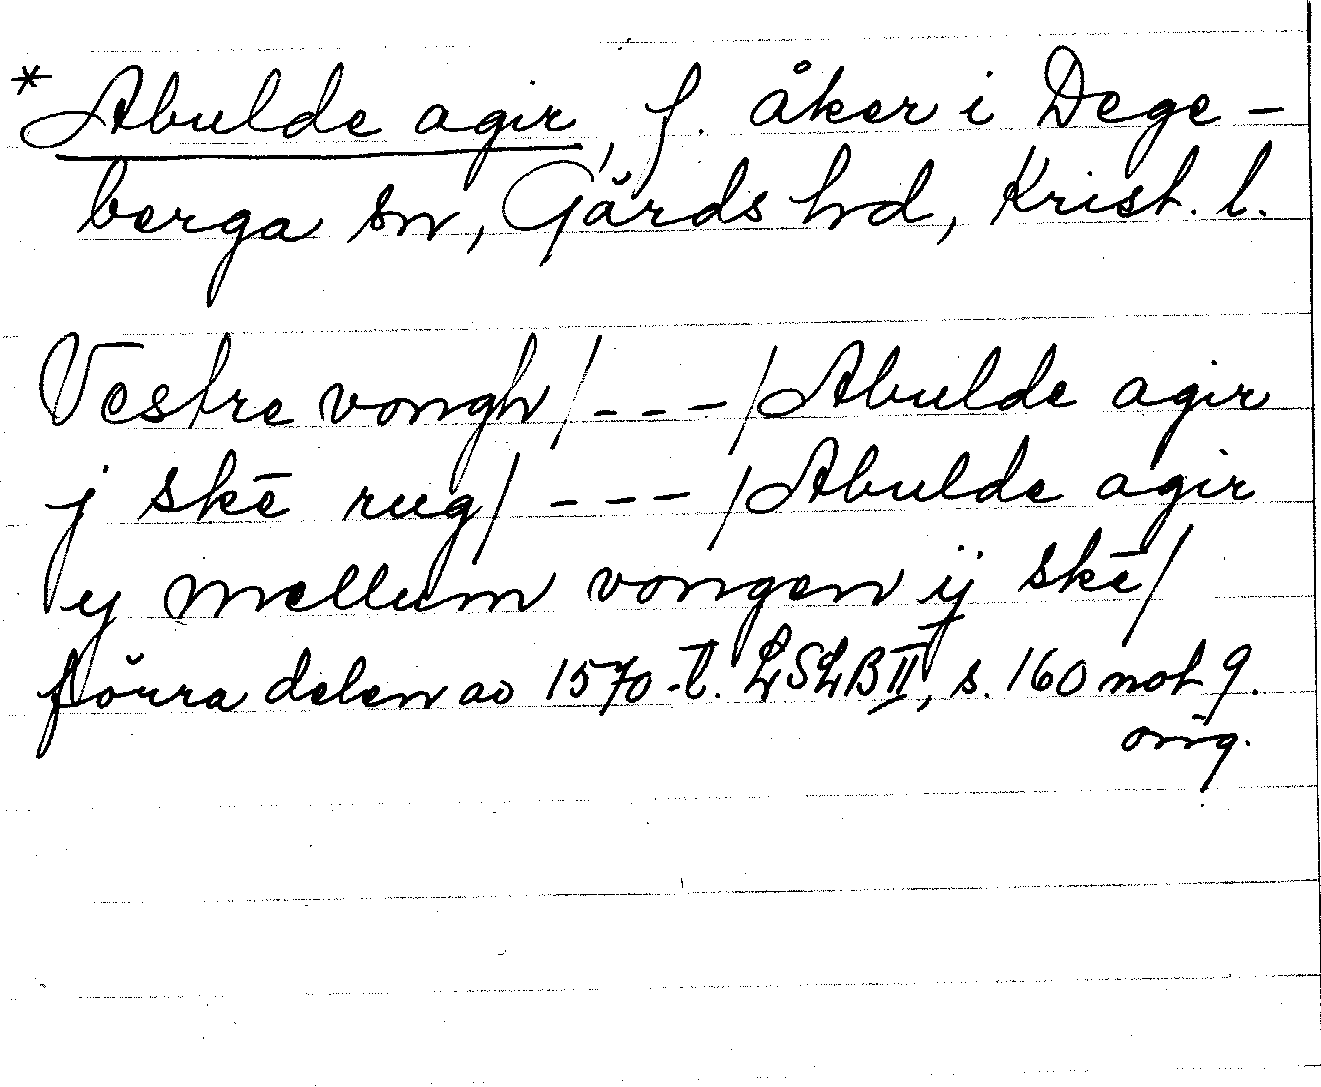 *Abulde agir, f. åker i Dege-
berga sn, Gärds hd, Krist. l.
Vestre vongh/---/Abulde agir
j skē rug/---/Abulde agir
y mellum vongen ij skē/
förra delen av 1570-t. LSLB II, s. 160 not 9.
orig.